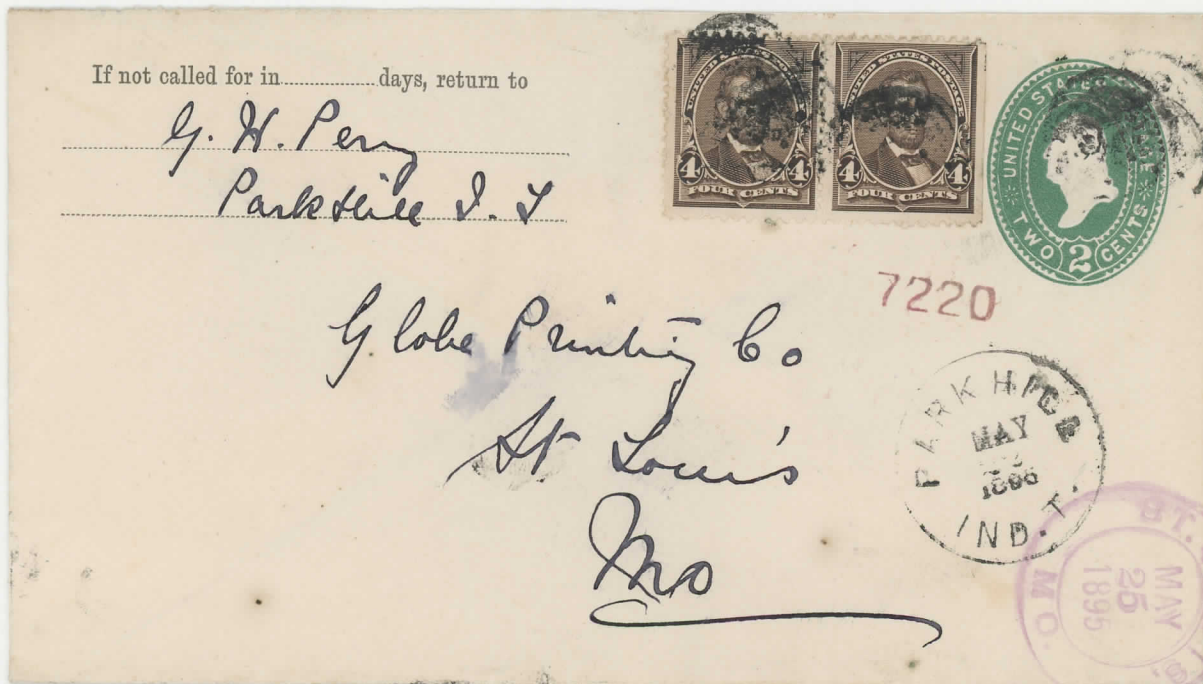 If not called for in .......... days, return to
G. W. Perry
Parkhill I. T
UNITED STATES POSTAGE
4 4
FOUR CENTS
UNITED STATES POSTAGE
4 4
FOUR CENTS
UNITED STATES
TWO 2 CENTS
7220
Globe Printing Co
St Louis
Mo
PARK HILL
MAY
IND. T.
ST.
MAY
25
1895
MO.